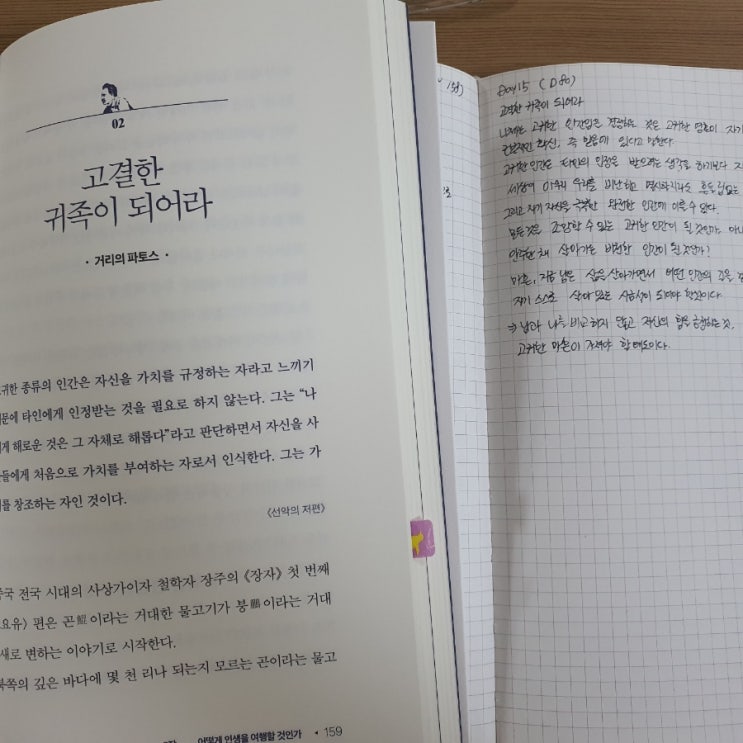 02
고결한
귀족이 되어라
· 거리의 파토스 ·
귀한 종류의 인간은 자신을 가치를 규정하는 자라고 느끼기
문에 타인에게 인정받는 것을 필요로 하지 않는다. 그는 “나
게 해로운 것은 그 자체로 해롭다”라고 판단하면서 자신을 사
물들에게 처음으로 가치를 부여하는 자로서 인식한다. 그는 가
를 창조하는 자인 것이다.
《선악의 저편》
국 전국 시대의 사상가이자 철학자 장주의 《장자》 첫 번째
요유〉 편은 곤鯤이라는 거대한 물고기가 붕鵬이라는 거대
새로 변하는 이야기로 시작한다.
북쪽의 깊은 바다에 몇 천 리나 되는지 모르는 곤이라는 물고
어떻게 인생을 여행할 것인가 · 159
158)
Day 15 (D80)
고결한 귀족이 되어라
니체는 고귀한 인간임을 증명하는 것은 고귀한 영혼이 자기
근본적인 확신, 즉 믿음에 있다고 말한다.
고귀한 인간은 타인의 인정을 받으려는 생각을 하기보다
세상에 아무리 우리를 비난하고 멸시하더라도 흔들림없는
그리고 자기 자신을 극복한 완전한 인간에 이를 수 있다.
모든 것을 조망할 수 있는 고귀한 인간이 될 것인가
안주한 채 살아가는 비천한 인간이 될 것인가?
마흔, 지금 남은 삶을 살아가면서 어떤 인간의 길을
자기 스스로 살아 있는 시금석이 되어야 할 것이다.
⇒ 남과 나를 비교하지 말고 자신의 힘을 긍정하는 것,
고귀한 마흔이 가져야 할 태도이다.